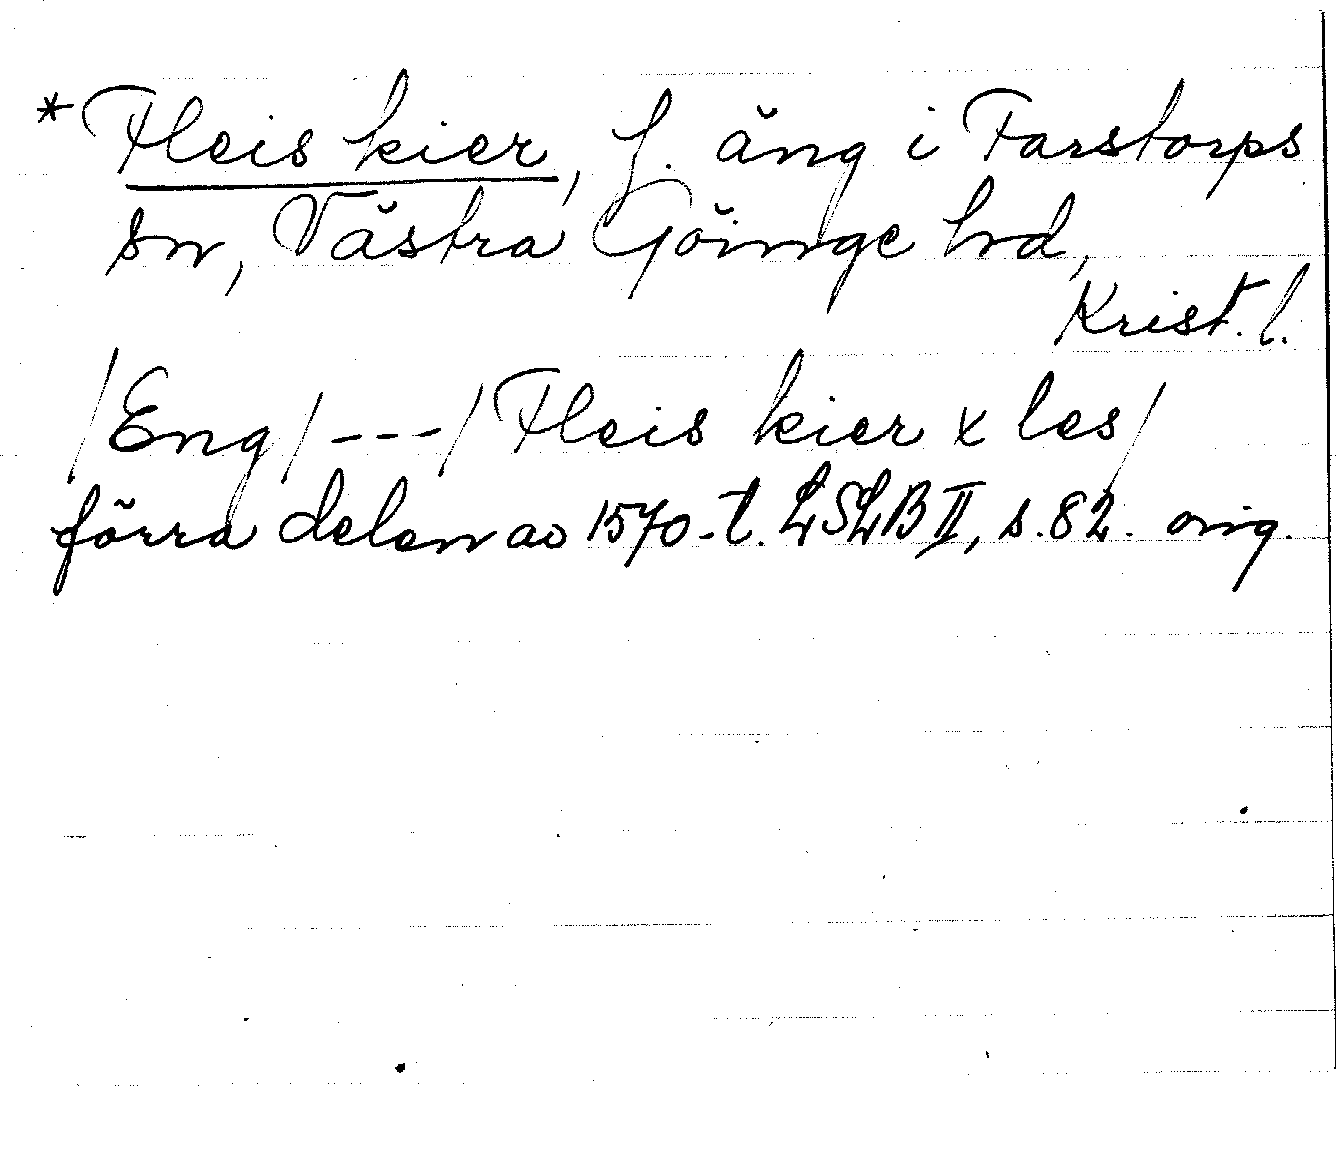 * Fleis kier, f. äng i Farstorps
sn, Västra Göinge hd,
Krist. l.
/Eng/ --- / Fleis kier x les/
förra delen av 1570-t. LSLB II, s. 82. orig.